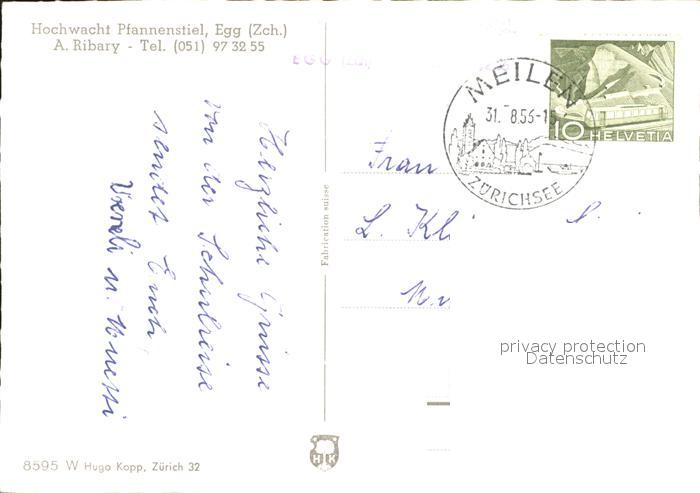 Hochwacht Pfannenstiel, Egg (Zch.)
A. Ribary - Tel. (051) 97 32 55
EGG (ZCH)
MEILEN
31. 8.56-15
ZÜRICHSEE
10 HELVETIA
Herzliche Grüsse
von der Schulreise
sendet Euch
Vreneli u. Muetti
Fabrication suisse
Frau
L. Kl
privacy protection
Datenschutz
HK
8595 W Hugo Kopp, Zürich 32